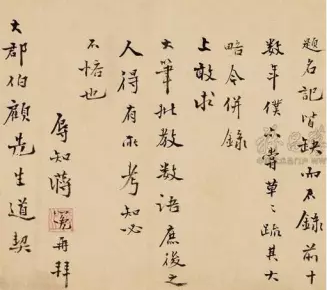 題名記皆缺而不錄前十
数年僕亦嘗草々疏其大
略今併錄
上敢求
大筆批教数語庶後之
人得有所考知必
不悋也
辱知蔣
再拜
大郡伯顧先生道契